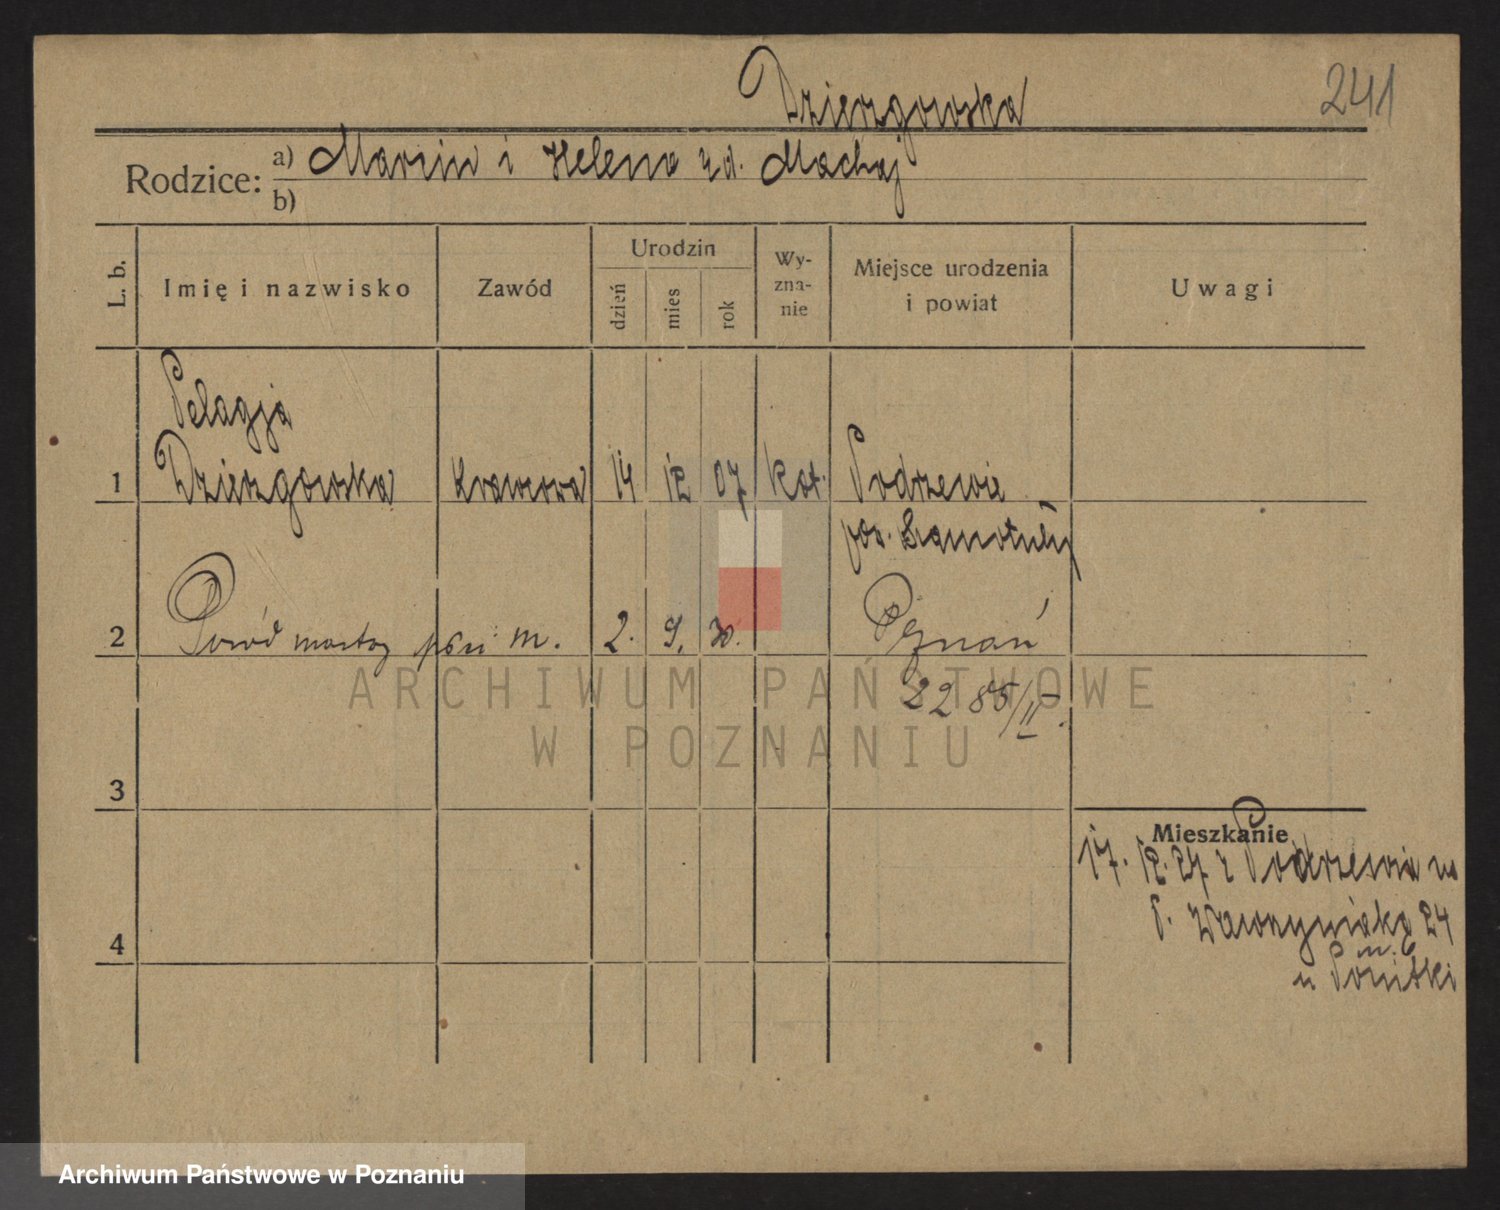 Dzierzgowska
241
Rodzice:
a) Marcin i Helena zd. Machaj
b)
L. b.
Imię i nazwisko
Zawód
Urodzin
dzień
mies
rok
Wy-
zna-
nie
Miejsce urodzenia
i powiat
Uwagi
Pelagja
1 Dzierzgowska Krawcowa 14 12 07 kat. Podrzewie
pow. Szamotuły
2 Poród martwy płci m. 2. 9. 30. Poznań
2286/II.
ARCHIWUM PAŃSTWOWE
W POZNANIU
3
Mieszkanie
17. 12. 27 z Podrzewia na
P. Wawrzyniaka 24
m. 6
u
4
Archiwum Państwowe w Poznaniu